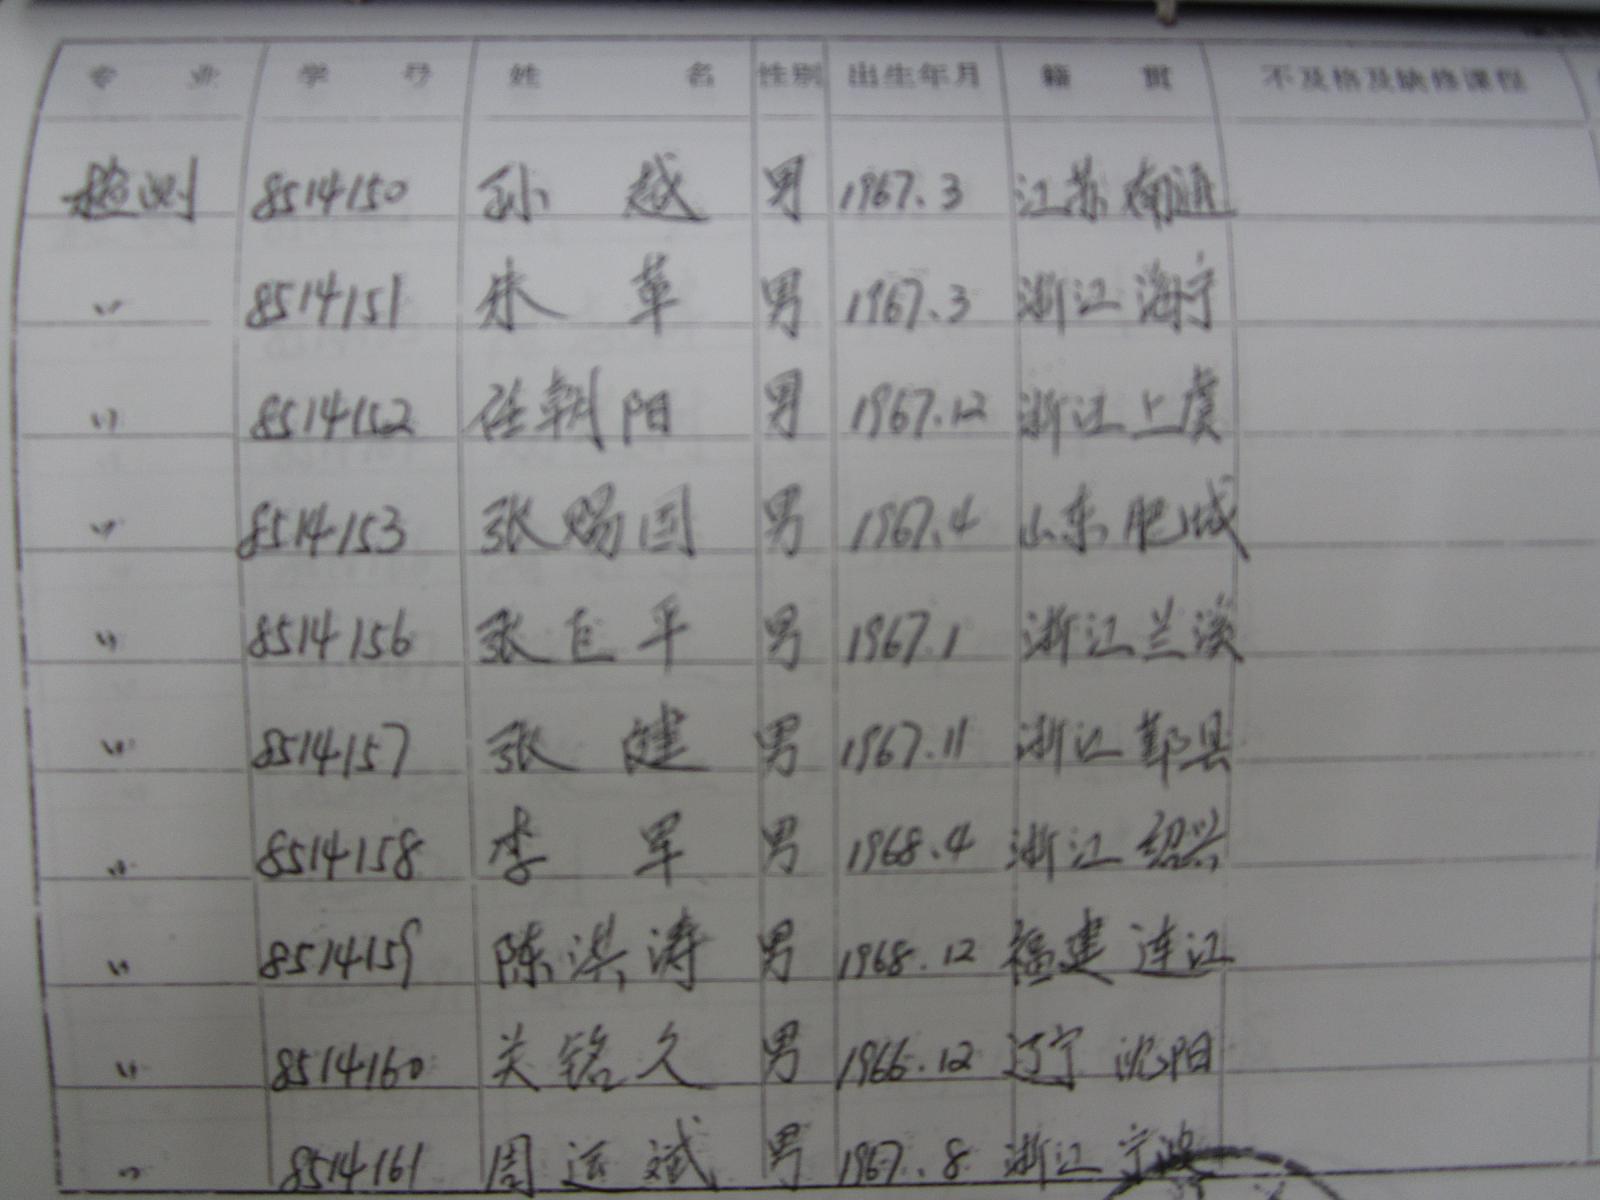 专业 学号 姓名 性别 出生年月 籍贯 不及格及缺修课程
检测 8514150 孙越 男 1967.3 江苏南通
〃 8514151 朱革 男 1967.3 浙江海宁
〃 8514152 任朝阳 男 1967.12 浙江上虞
〃 8514153 张赐国 男 1967.4 山东肥城
〃 8514156 张巨平 男 1967.1 浙江兰溪
〃 8514157 张健 男 1967.11 浙江鄞县
〃 8514158 李军 男 1968.4 浙江绍兴
〃 8514159 陈洪涛 男 1968.12 福建连江
〃 8514160 关铭久 男 1966.12 辽宁沈阳
〃 8514161 周远斌 男 1967.8 浙江宁波